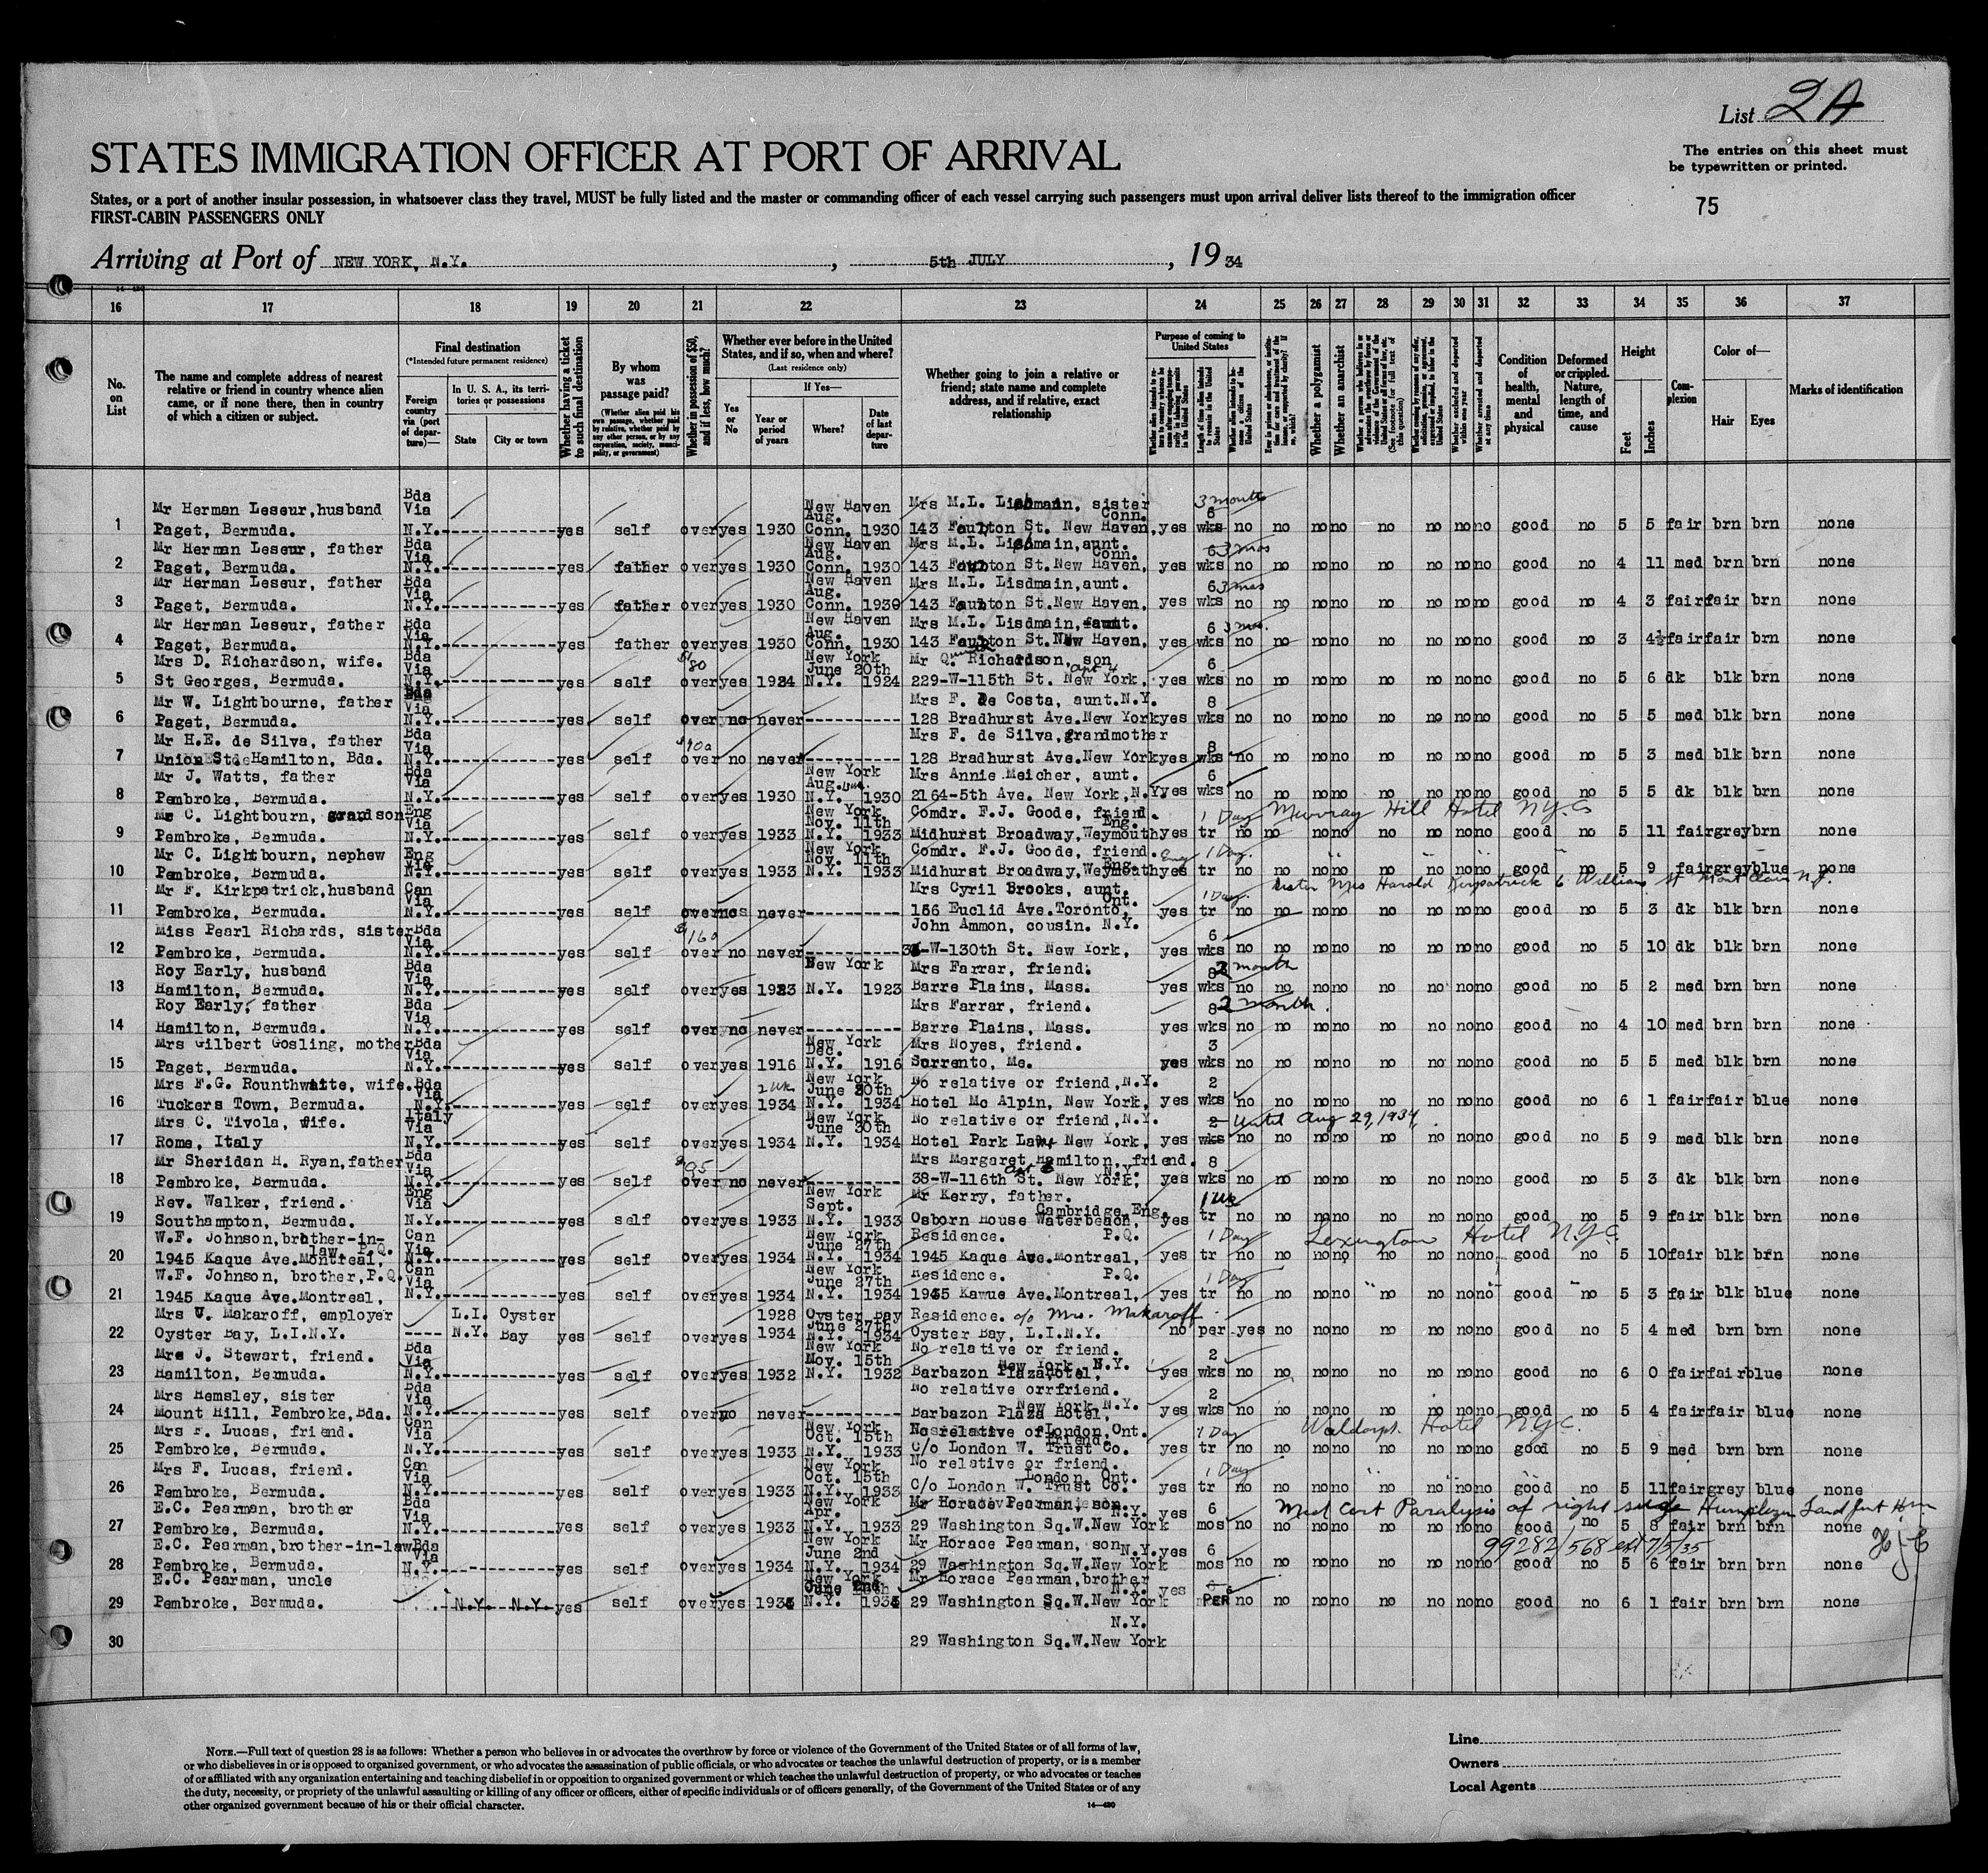 List 2A
STATES IMMIGRATION OFFICER AT PORT OF ARRIVAL
The entries on this sheet must
be typewritten or printed.
States, or a port of another insular possession, in whatsoever class they travel, MUST be fully listed and the master or commanding officer of each vessel carrying such passengers must upon arrival deliver lists thereof to the immigration officer
FIRST-CABIN PASSENGERS ONLY
75
Arriving at Port of NEW YORK, N.Y. , 5th JULY , 19 34
16 17 18 19 20 21 22 23 24 25 26 27 28 29 30 31 32 33 34 35 36 37
No. on List
The name and complete address of nearest relative or friend in country whence alien came, or if none there, then in country of which a citizen or subject.
Final destination
(*Intended future permanent residence)
Foreign country via (port of departure)—
In U. S. A., its territories or possessions
State City or town
Whether having a ticket to such final destination
By whom was passage paid?
(Whether alien paid his own passage, whether paid by relative, whether paid by any other person, or by any corporation, society, municipality, or government)
Whether in possession of $50, and if less, how much?
Whether ever before in the United States, and if so, when and where?
(Last residence only)
Yes or No
If Yes—
Year or period of years
Where?
Date of last departure
Whether going to join a relative or friend; state name and complete address, and if relative, exact relationship
Purpose of coming to United States
Length of time alien intends to remain in the United States
Whether alien intends to become a citizen of the United States
Whether a polygamist
Whether an anarchist
Whether excluded and deported within one year
Whether arrested and deported at any time
Condition of health, mental and physical
Deformed or crippled. Nature, length of time, and cause
Height
Feet Inches
Complexion
Color of—
Hair Eyes
Marks of identification
1 Mr Herman Leseur, husband Paget, Bermuda. Bda Via N.Y. yes self over yes 1930 New Haven Aug. Conn. 1930 Mrs M.L. sister 143 St. New Haven, Conn. yes 6 wks 3 month no no no no no no no no good no 5 5 fair brn brn none
2 Mr Herman Leseur, father Paget, Bermuda. Bda Via N.Y. yes father over yes 1930 New Haven Aug. Conn. 1930 Mrs M.L. aunt. 143 St. New Haven, Conn. yes 6 wks 3 mos no no no no no no no no good no 4 11 med brn brn none
3 Mr Herman Leseur, father Paget, Bermuda. Bda Via N.Y. yes father over yes 1930 New Haven Aug. Conn. 1930 Mrs M.L. Lisdmain, aunt. 143 St. New Haven, yes 6 wks 3 mos no no no no no no no no good no 4 3 fair fair brn none
4 Mr Herman Leseur, father Paget, Bermuda. Bda Via N.Y. yes father over yes 1930 New Haven Aug. Conn. 1930 Mrs M.L. Lisdmain, aunt. 143 St. New Haven, yes 6 wks 3 mos. no no no no no no no no good no 3 4½ fair fair brn none
5 Mrs D. Richardson, wife. St Georges, Bermuda. Bda Via N.Y. yes self over $80 yes 1924 New York June 20th N.Y. 1924 Mr Q. Richardson, son 229-W-115th St. New York, apt 4 yes 6 wks no no no no no no no no good no 5 6 dk blk brn none
6 Mr W. Lightbourne, father Paget, Bermuda. Bda Via N.Y. yes self over no never Mrs F. de Costa, aunt. N.Y. 128 Bradhurst Ave. New York yes 8 wks no no no no no no no no good no 5 5 med blk brn none
7 Mr H.E. de Silva, father Union St Hamilton, Bda. Bda Via N.Y. yes self over $100 no never Mrs F. de Silva, grandmother 128 Bradhurst Ave. New York yes 8 wks no no no no no no no no good no 5 3 med blk brn none
8 Mr J. Watts, father Pembroke, Bermuda. Bda Via N.Y. yes self over yes 1930 New York Aug. N.Y. 1930 Mrs Annie Meicher, aunt. 2164-5th Ave. New York, N.Y. yes 6 wks no no no no no no no no good no 5 5 dk blk brn none
9 Mr C. Lightbourn, grandson Pembroke, Bermuda. Eng Via N.Y. yes self over yes 1933 New York Nov. 11th N.Y. 1933 Comdr. F.J. Goode, friend. Midhurst Broadway, Weymouth Eng. yes tr 1 Day Murray Hill Hotel N.Y.C. no no no no no no no no good no 5 11 fair grey brn none
10 Mr C. Lightbourn, nephew Pembroke, Bermuda. Eng Via N.Y. yes self over yes 1933 New York Nov. 11th N.Y. 1933 Comdr. F.J. Goode, friend. Midhurst Broadway, Weymouth Eng. yes tr 1 Day. no no no no no no no no good no 5 9 fair grey blue none
11 Mr F. Kirkpatrick, husband Pembroke, Bermuda. Can Via N.Y. yes self over no never Mrs Cyril Brooks, aunt. 156 Euclid Ave. Toronto, Ont. yes tr 1 Day. Sister Mrs Harold Kirkpatrick 6 William St Mont Clair N.J. no no no no no no no no good no 5 3 dk blk brn none
12 Miss Pearl Richards, sister Pembroke, Bermuda. Bda Via N.Y. yes self over $160 no never John Ammon, cousin. N.Y. W-130th St. New York, yes 6 wks no no no no no no no no good no 5 10 dk blk brn none
13 Roy Early, husband Hamilton, Bermuda. Bda Via N.Y. yes self over yes 1923 New York N.Y. 1923 Mrs Farrar, friend. Barre Plains, Mass. yes 8 wks 2 month no no no no no no no no good no 5 2 med brn brn none
14 Roy Early, father Hamilton, Bermuda. Bda Via N.Y. yes self over no never Mrs Farrar, friend. Barre Plains, Mass. yes 8 wks 2 month. no no no no no no no no good no 4 10 med brn brn none
15 Mrs Gilbert Gosling, mother Paget, Bermuda. Bda Via N.Y. yes self over yes 1916 New York Dec. N.Y. 1916 Mrs Noyes, friend. Sorrento, Me. yes 3 wks no no no no no no no no good no 5 5 med blk brn none
16 Mrs F.G. Rounthwaite, wife. Tuckers Town, Bermuda. Bda Via N.Y. yes self over yes 2 wk 1934 New York June 20th N.Y. 1934 No relative or friend, N.Y. Hotel Mc Alpin, New York, yes 2 wks no no no no no no no no good no 6 1 fair fair blue none
17 Mrs C. Tivola, wife. Rome, Italy Italy Via N.Y. yes self over yes 1934 New York June 30th N.Y. 1934 No relative or friend, N.Y. Hotel Park Lane New York, yes 2 wks Until Aug 29, 1934, no no no no no no no no good no 5 9 med blk brn none
18 Mr Sheridan H. Ryan, father Pembroke, Bermuda. Bda Via N.Y. yes self over $95 no never Mrs Margaret Hamilton, friend. 38-W-116th St. New York, N.Y. yes 8 wks no no no no no no no no good no 5 3 dk blk brn none
19 Rev. Walker, friend. Southampton, Bermuda. Eng Via N.Y. yes self over yes 1933 New York Sept. N.Y. 1933 Mr Kerry, father. Osborn House Waterbeach, Cambridge, Eng. yes tr 1 Wk no no no no no no no no good no 5 9 fair blk brn none
20 W.F. Johnson, brother-in-law, P.Q. 1945 Kaque Ave. Montreal, Can Via N.Y. yes self over yes 1934 New York June 27th N.Y. 1934 Residence. 1945 Kaque Ave. Montreal, P.Q. yes tr 1 Day Lexington Hotel N.Y.C. no no no no no no no no good no 5 10 fair blk brn none
21 W.F. Johnson, brother, P.Q. 1945 Kaque Ave. Montreal, Can Via N.Y. yes self over yes 1934 New York June 27th N.Y. 1934 Residence. 1945 Kawue Ave. Montreal, P.Q. yes tr 1 Day no no no no no no no no good no 5 3 fair blk blue none
22 Mrs V. Makaroff, employer Oyster Bay, L.I.N.Y. L.I. N.Y. Oyster Bay yes self over yes 1928 1934 Oyster Bay June 27th N.Y. 1934 Residence. c/o Mrs. Makaroff Oyster Bay, L.I.N.Y. no per yes no no no no no no no good no 5 4 med brn brn none
23 Mrs J. Stewart, friend. Hamilton, Bermuda. Bda Via N.Y. yes self over yes 1932 New York Nov. 15th N.Y. 1932 No relative or friend. Barbazon Plaza Hotel, New York, N.Y. yes 2 wks no no no no no no no no good no 6 0 fair fair blue none
24 Mrs Hemsley, sister Mount Hill, Pembroke, Bda. Bda Via N.Y. yes self over no never No relative or friend. Barbazon Plaza Hotel, New York N.Y. yes 2 wks no no no no no no no no good no 5 4 fair fair blue none
25 Mrs F. Lucas, friend. Pembroke, Bermuda. Can Via N.Y. yes self over yes 1933 New York Oct. 15th N.Y. 1933 No relative or friend. London, Ont. C/o London W. Trust Co. yes tr 1 Day Waldorf. Hotel N.Y.C. no no no no no no no no good no 5 9 med brn brn none
26 Mrs F. Lucas, friend. Pembroke, Bermuda. Can Via N.Y. yes self over yes 1933 New York Oct. 15th N.Y. 1933 No relative or friend. C/o London W. Trust Co. London, Ont. yes tr 1 Day no no no no no no no no good no 5 11 fair grey blue none
27 E.C. Pearman, brother Pembroke, Bermuda. Bda Via N.Y. yes self over yes 1933 New York Apr. N.Y. 1933 Mr Horace Pearman, son 29 Washington Sq. W. New York N.Y. yes 6 mos Med Cert Paralysis of right side no no no no no no no no good no 5 8 fair brn brn none
28 E.C. Pearman, brother-in-law Pembroke, Bermuda. Bda Via N.Y. yes self over yes 1934 New York June 2nd N.Y. 1934 Mr Horace Pearman, son 29 Washington Sq. W. New York N.Y. yes 6 mos 99282/568 ext 7/5/35 no no no no no no no no good no 5 6 fair brn brn none
29 E.C. Pearman, uncle Pembroke, Bermuda. N.Y. N.Y. yes self over yes New York June N.Y. Mr Horace Pearman, brother 29 Washington Sq. W. New York N.Y. yes PER no no no no no no no no good no 6 1 fair brn brn none
30 29 Washington Sq. W. New York N.Y.
NOTE.—Full text of question 28 is as follows: Whether a person who believes in or advocates the overthrow by force or violence of the Government of the United States or of all forms of law,
or who disbelieves in or is opposed to organized government, or who advocates the assassination of public officials, or who advocates or teaches the unlawful destruction of property, or is a member
of or affiliated with any organization entertaining and teaching disbelief in or opposition to organized government or which teaches the unlawful destruction of property, or who advocates or teaches
the duty, necessity, or propriety of the unlawful assaulting or killing of any officer or officers, either of specific individuals or of officers generally, of the Government of the United States or of any
other organized government because of his or their official character.
14—430
Line
Owners
Local Agents